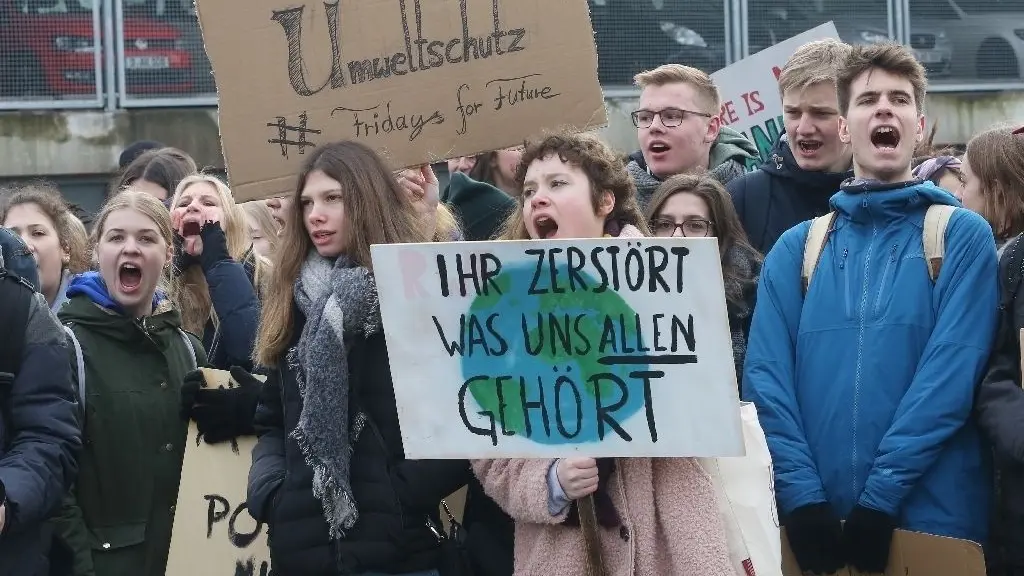 Umweltschutz
# Fridays for Future
RE IS
IHR ZERSTÖRT
WAS UNS ALLEN
GEHÖRT
PO